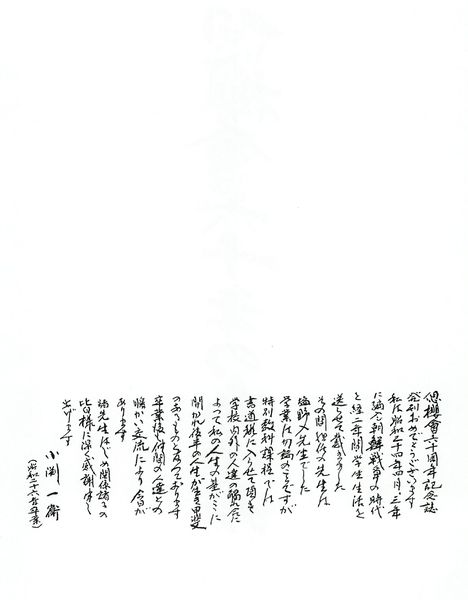 思櫻會六十周年記念誌
発刊おめでとうございます
私は昭和二十四年四月、三年
に編入 朝鮮戦争の時代
と経 二年間学生生活を
送らせて戴きました
その間 担任の先生は
塩野入先生でした
学業は勿論のことですが
特別教科課程では
書道班に入らせて頂き
学校内外の人達の触れ合いに
よって私の人生の基がここに
開かれ後半の人生が生き甲斐
のあるものとなっております
卒業後 仲間の人達との
暖かい交流により今日が
あります
諸先生はじめ関係諸々の
皆様に深く感謝申し
上げます
小渕一衛
(昭和二十六年卒業)